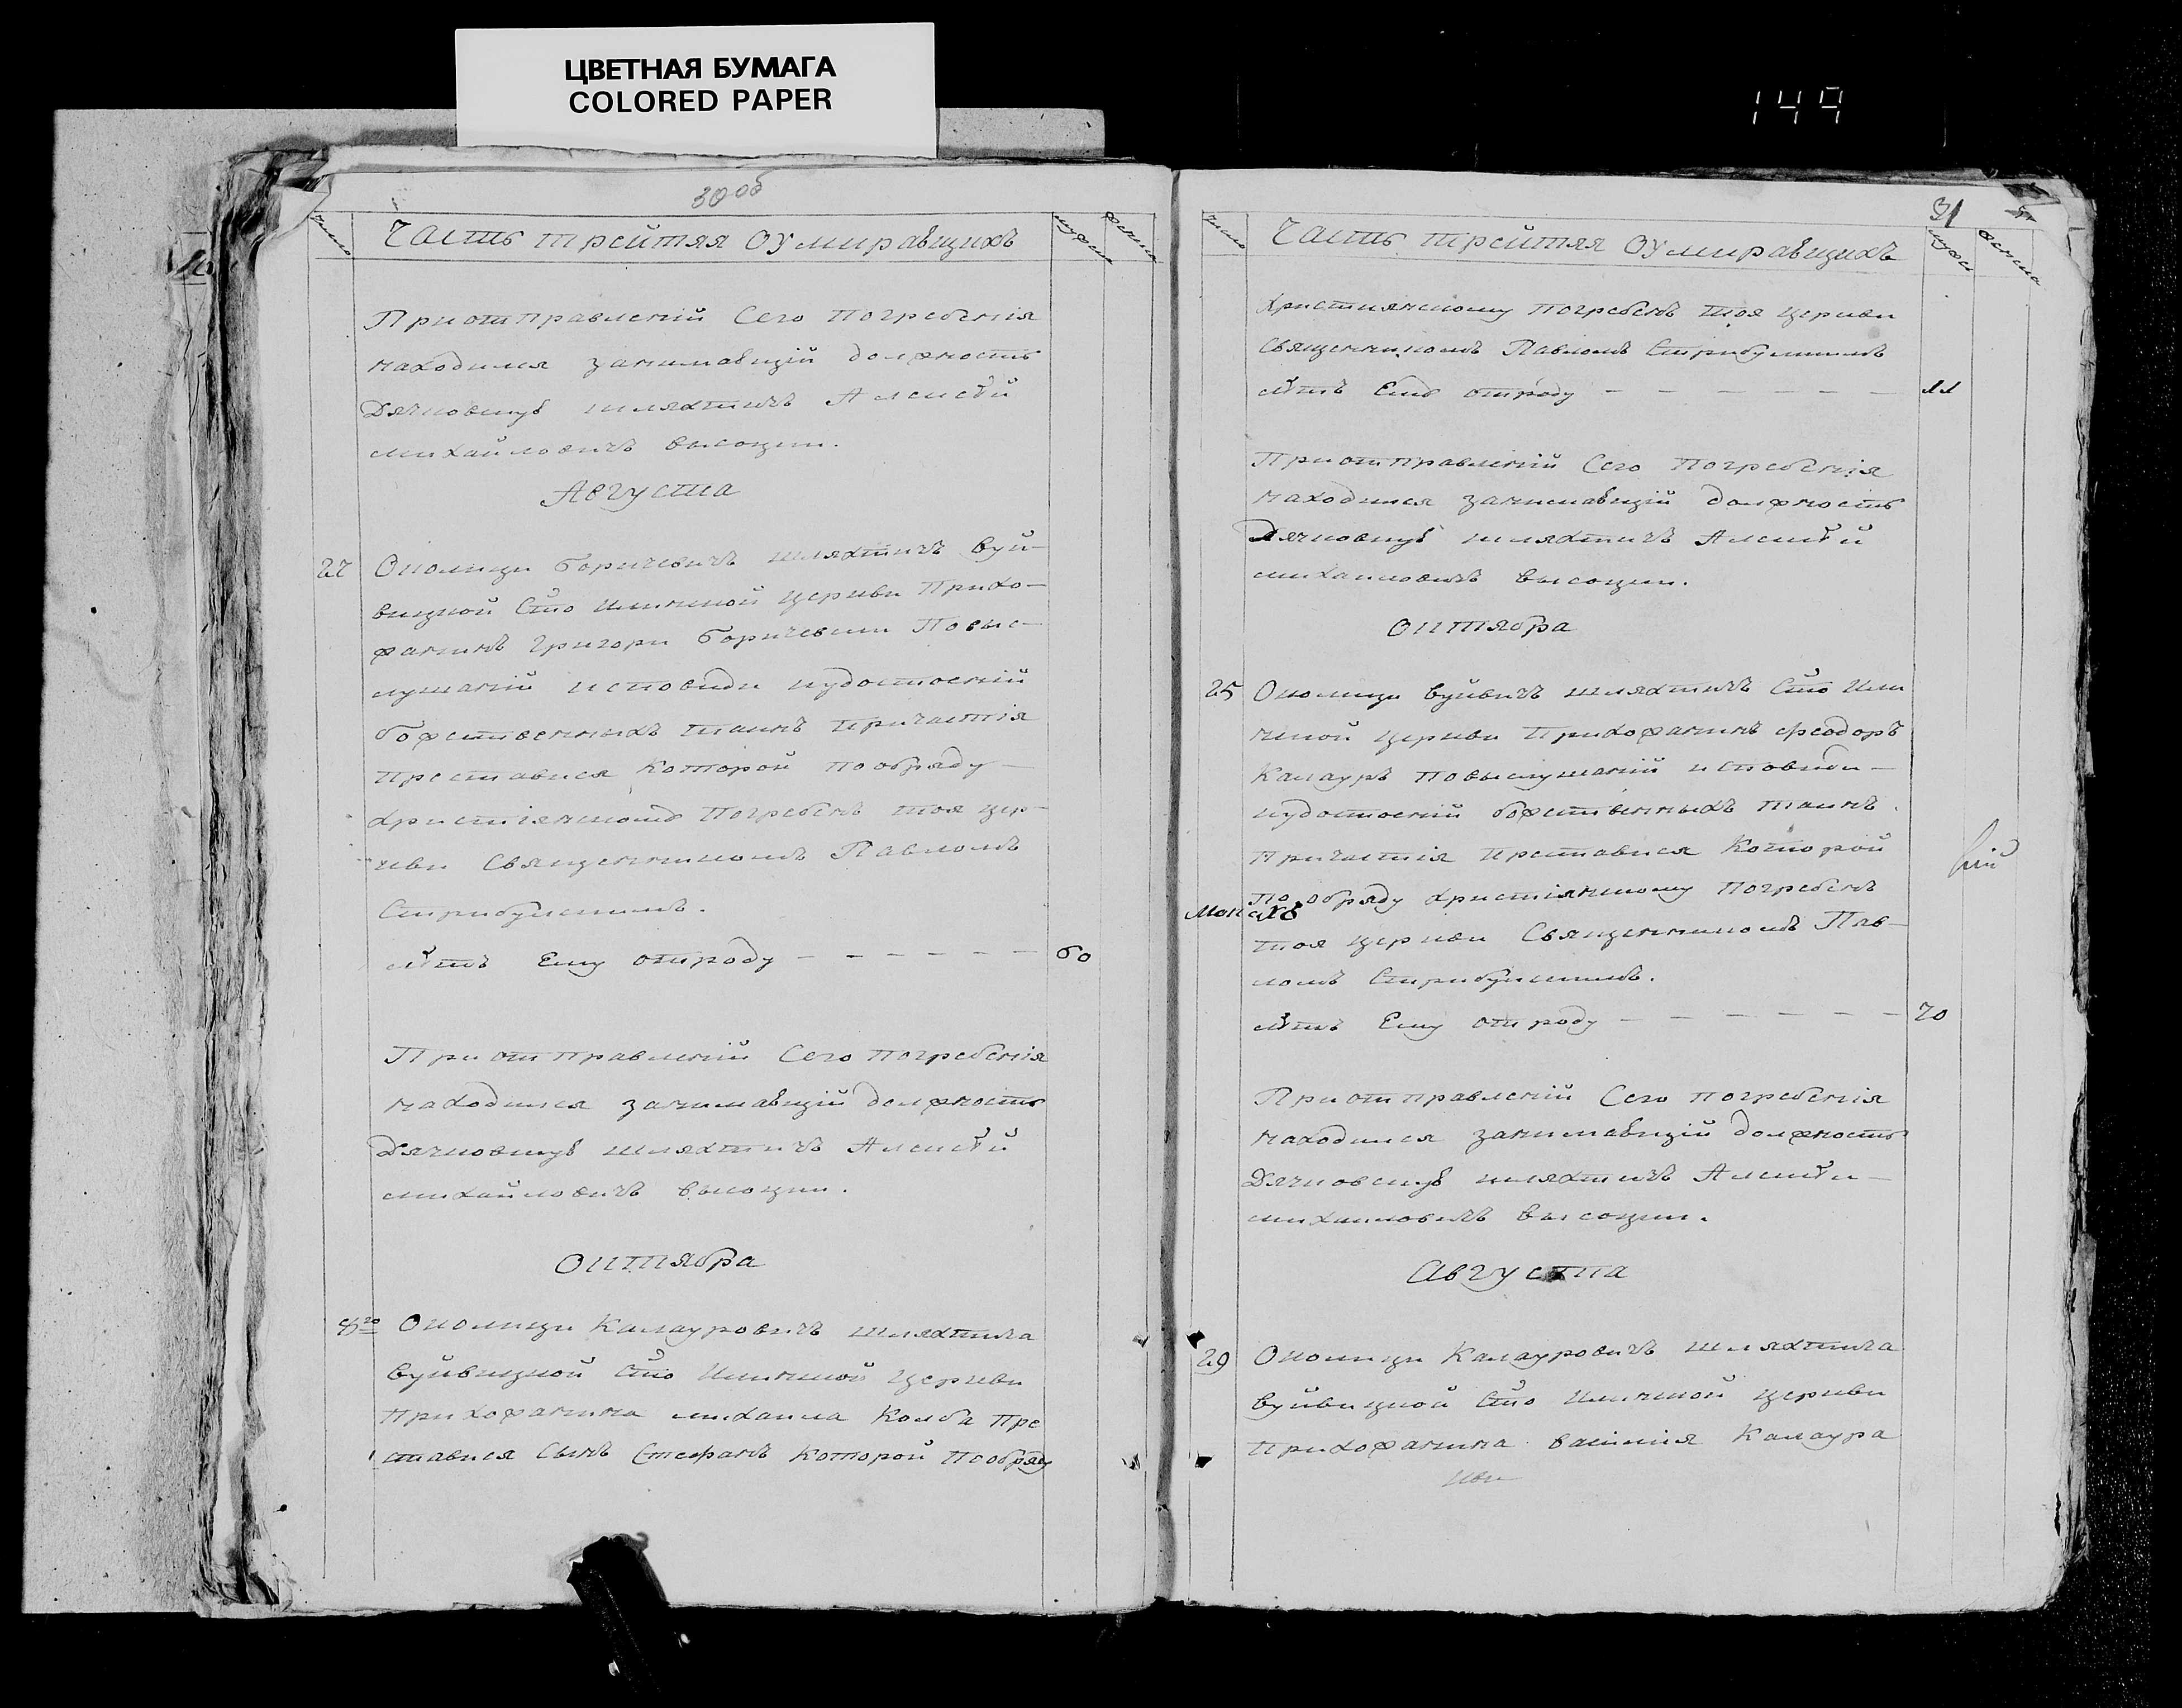 ЦВЕТНАЯ БУМАГА
COLORED PAPER
149
30об
число
Часть трейтяя оумиравщихъ
мужеск
женска
При отправленій Сего погребенія
находился занимавщій должность
Дячковскуѣ шляхтичъ Алексѣй
михайловичъ высоцки.
Августа
27
Околици Боричевичъ шляхтичъ Вуй-
вицкой Сто Илинской церкви Прихо-
жанинъ Григори Боричевски Повыс-
лушаній исповиди иудостоеній
божественныхъ таинъ причастія
преставися Которой пообряду
христіянскомѣ Погребенъ тоя цер-
кви Священникомъ Павломъ
лѣтъ Ему отроду - - - - - -
60
При отправленій Сего погребенія
находился занимавщій должность
Дячковскуѣ шляхтичъ Алексѣй
михайловичъ высоцки.
Октября
8го
Околици Калауровичъ шляхтича
Вуйвицкой Сто Илинской Церкви
Прихожанина михаила Колба Пре
ставися Сынъ Стефанъ Которой пообряду
31
число
Часть трейтяя оумиравщихъ
мужск
женска
християнскому погребенъ тоя церкви
Священникомъ Павломъ
лѣтъ Емѣ отроду - - - - - - -
11
При отправленій Сего погребенія
находился занимавщій должность
Дячковскуѣ шляхтичъ Алексѣй
михаиловичъ высоцки.
октября
25
Околици Вуйвичъ шляхтичъ Сто Или
нской церкви Прихожанинъ феодоръ
Калауръ повыслушаній исповиди-
иудостоеній божественныхъ таинъ
Причастія преставися Которой
по обряду христіянскому погребенъ
Монахъ
тоя церкви Священникомъ Пав-
лѣтъ Ему отроду - - - - - - -
70
При отправленій Сего погребенія
находился занимавщій должность
Дячковскуѣ шляхтичъ Алексѣи-
михаиловичъ высоцки.
Августа
29
Околици Калауровичъ шляхтича
Вуйвицкой Сто Илинской церкви
прихожанина василия Калаура